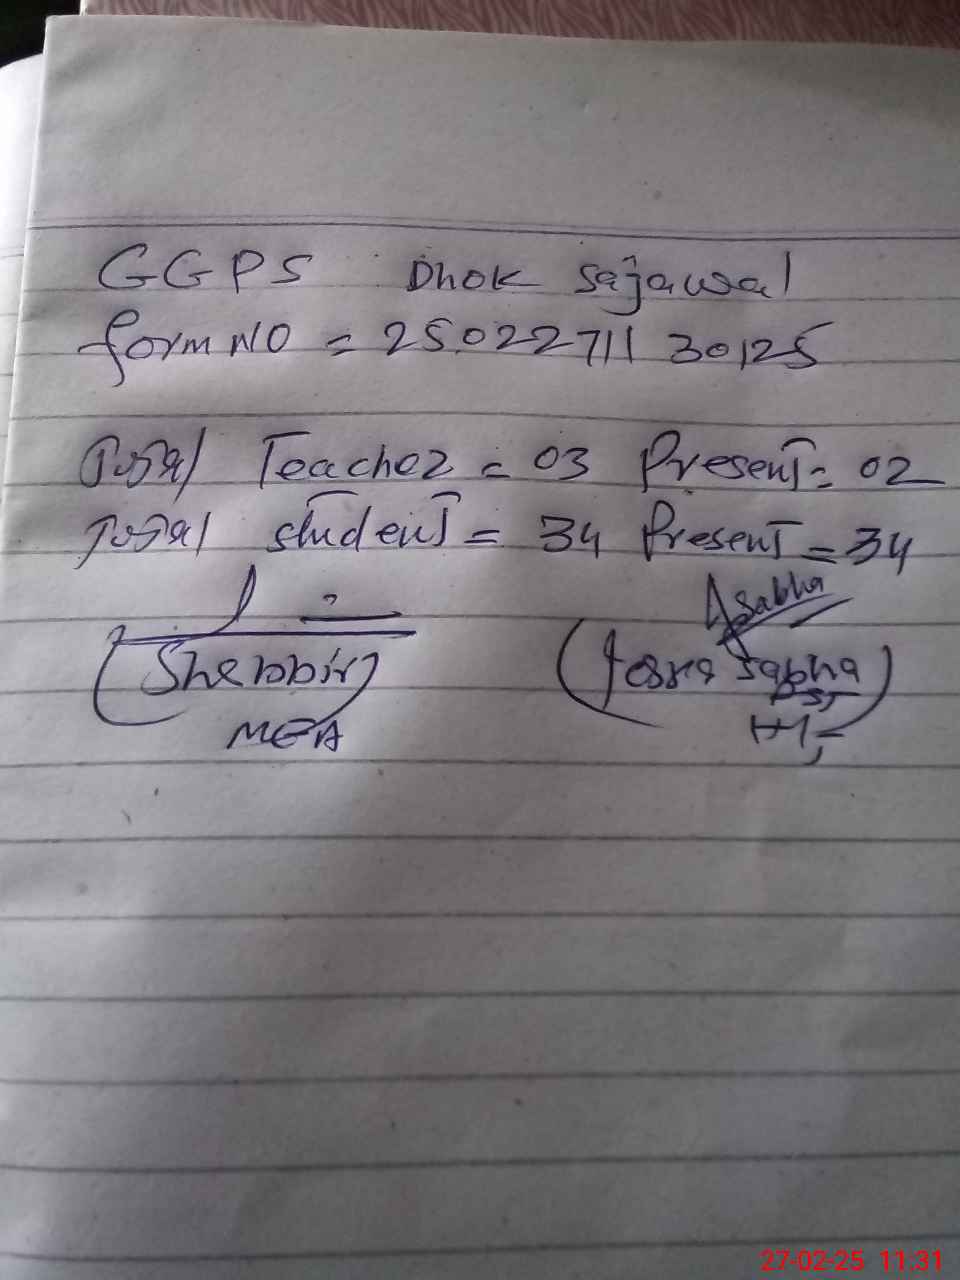 GGPS Dhok Sajawal
form NO = 2502271130125
Total Teacher = 03 Present = 02
Total student = 34 Present = 34
Sabha
(Shabbir)
MEA
(Asra Sabha)
PST
HT
27-02-25 11:31